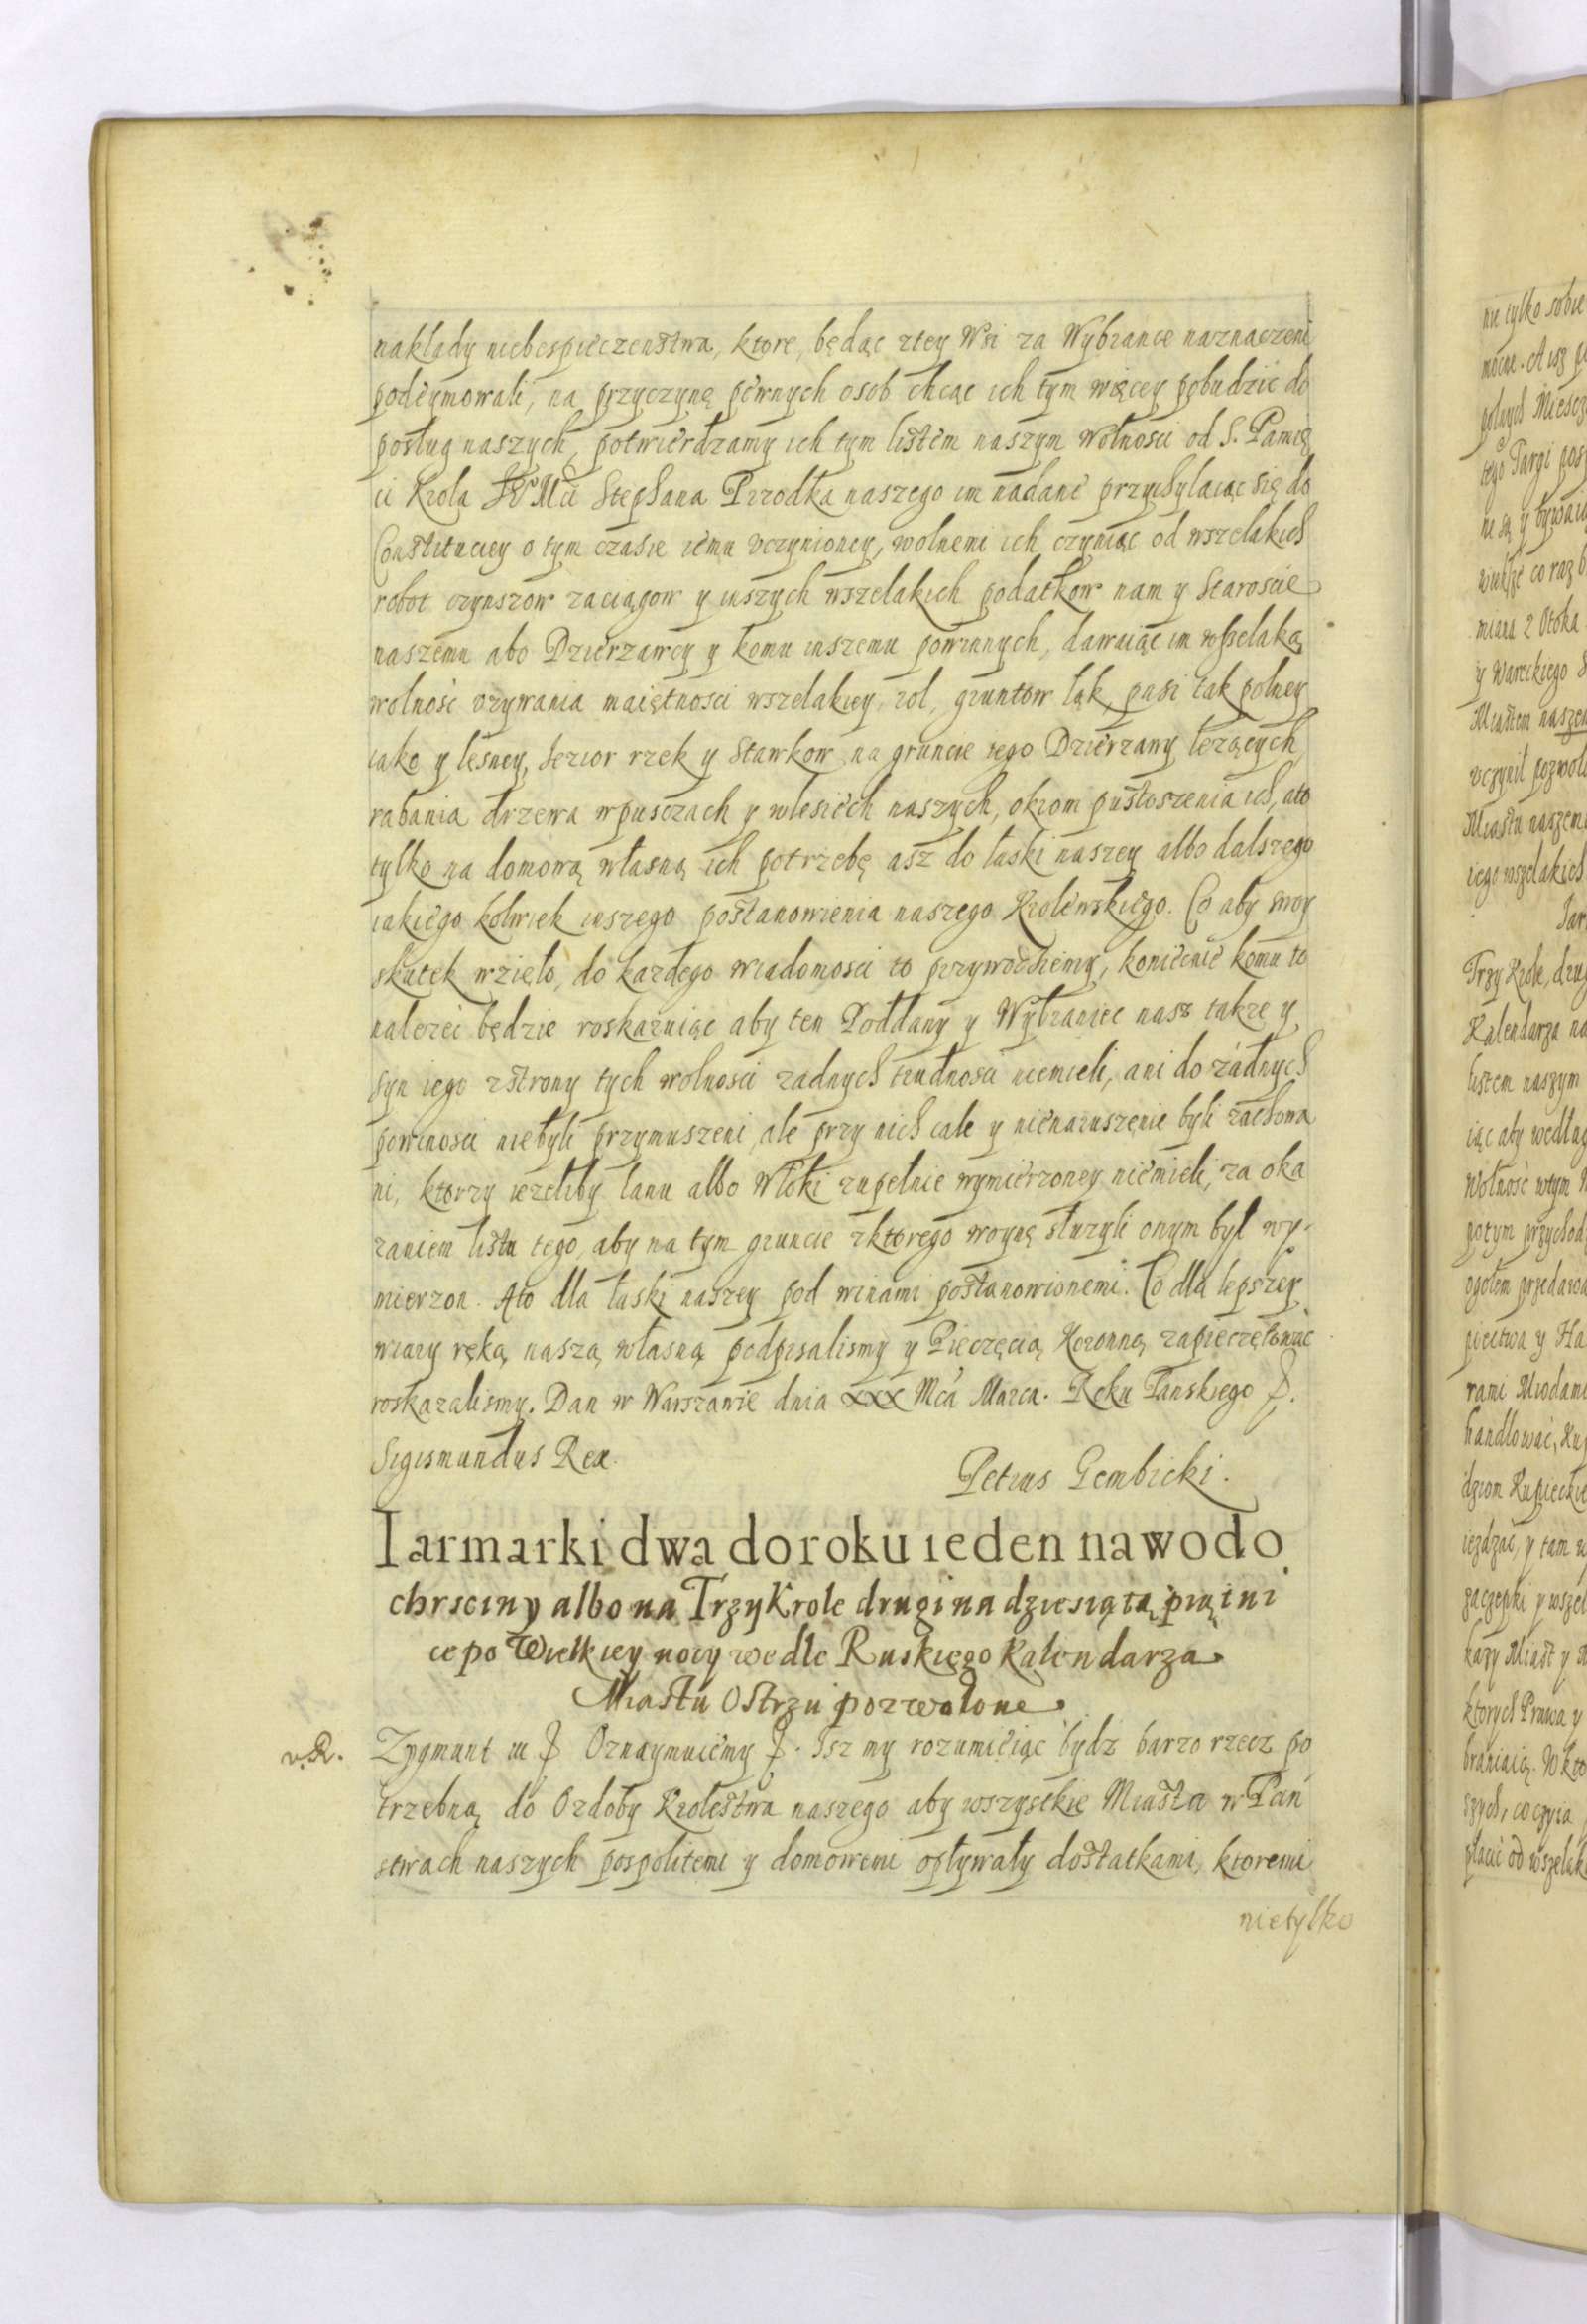 nakłady niebespieczenstwa, ktore, będąc ztey Wsi za Wybrance naznaczeni
podeymowali, na przyczynę pewnych osob chcąc ich tym więcey pobudzic do
posług naszych, potwierdzamy ich tym listem naszym wolnosci od S. Pamię
ci Krola Mci Stephana Przodka naszego im nadane przychylaiąc się do
Constituciey o tym czasie iemu vczynioney, wolnemi ich czyniąc od wszelakich
robot czynszow zaciągow y inszych wszelakich podatkow nam y Staroscie
naszemu abo Dzierzawcy y komu inszemu powinnych, dawaiąc im wsselaką
wolność vzywania maiętnosci wszelakiey, rol, gruntow łąk, pasi tak polney
iako y leśney, Iezior rzek y Stawkow na gruncie tego Dzierzawy lezących
rąbania drzewa wpusczach y wlesiech naszych, okrom pustoszenia ich, ato
tylko na domową własną ich potrzebę asz do łaski naszey albo dalszego
iakiego kolwiek inszego postanowienia naszego Krolewskiego. Co aby swoy
skutek wzięło, do kazdego wiadomosci to przywodziemy, koniecnie komu to
nalezeć będzie roskazuiąc aby ten Poddany y Wybraniec nasz takze y
syn iego zstrony tych wolnosci zadnych trudnosci niemieli, ani do zadnych
powinosci niebyli przymuszeni, ale przy nich cale y nienaruszenie byli zachowa
ni, ktorzy iezeliby łanu albo Włoki zupełnie wymierzoney niemieli, za oka
zaniem listu tego, aby na tym gruncie zktorego woynę słuzyli onym był wy-
mierzon. Ato dla łaski naszey pod winami postanowionemi. Co dla lepszey
wiary ręką naszą własną podpisalismy y Pieczęcią Koronną zapieczętowac
roskazalismy. Dan w Warszawie dnia XXX Mca Marca. Roku Panskiego
Sigismundus Rex.
Petrus Gembicki.
Iarmarki dwa do roku ieden na wodo
chrsciny albo na Trzy Krole drugi na dziesiątą piątni
ce po Wielkiey nocy wedle Ruskiego Kalendarza
Miastu Ostrzu pozwolone
v. R.
Zygmunt III Oznaymuiemy. Isz my rozumieiąc bydz barzo rzecz po
trzebną do Ozdoby Krolestwa naszego aby wszysckie Miasta w Pań
stwach naszych pospolitemi y domowemi opływały dostatkami, ktoremi
nietylko
nie tylko sobie
polnych Miescz
tego Targi posp
ne są y bywaią
y Wareckiego
Miastem naszem
vczynił pozwol
Miastu naszem
iego wszelakich
Iar
Trzy Krole, drug
Kalendarza na
listem naszym
iąc aby według
Wolność wtym
potym przychod
rami Miodami
handlować, Kup
kazy Miast y
ktorych Prawa y
płacić od wszelak